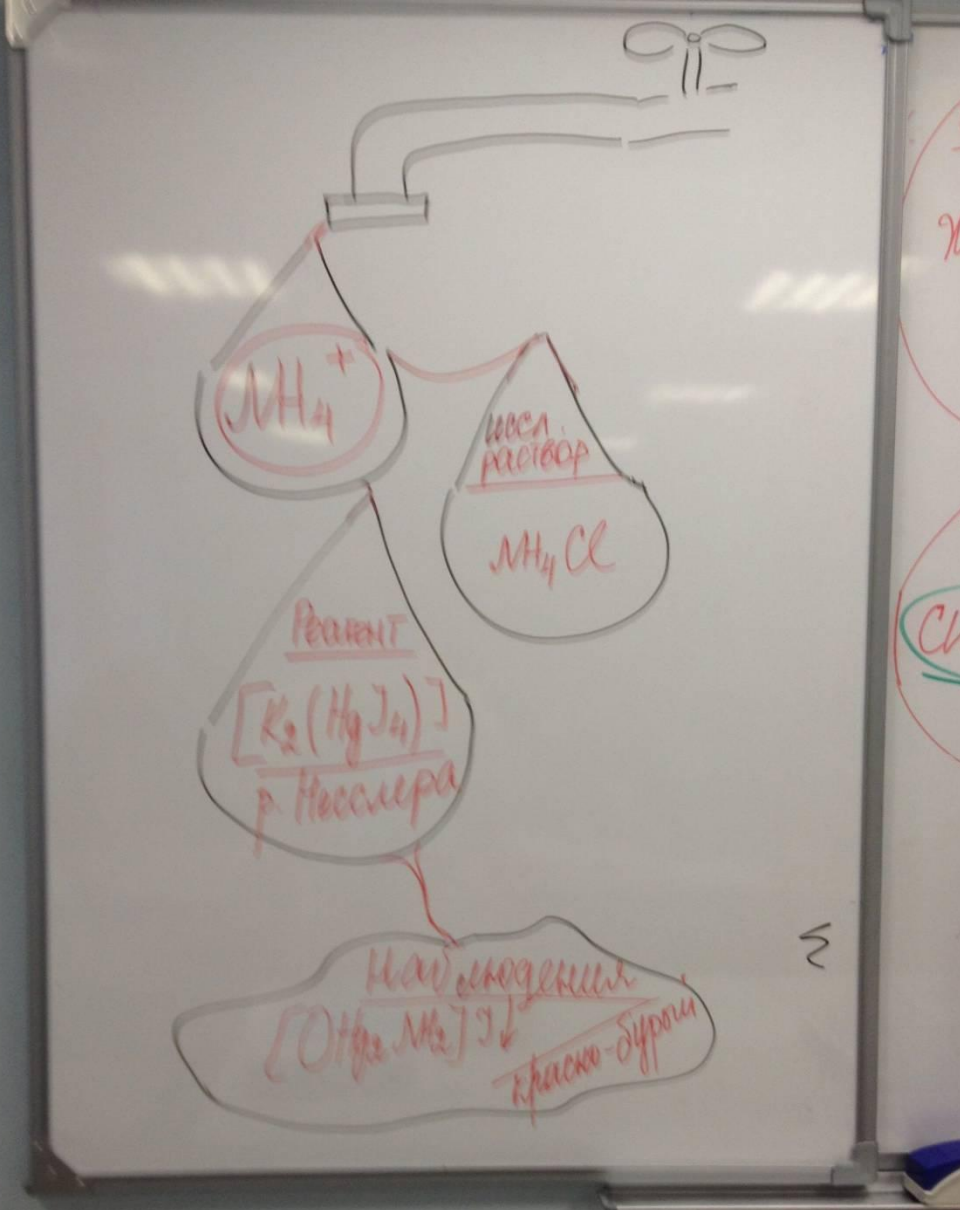 NH₄⁺
иссл.
раствор
NH₄Cl
Реагент
[K₂(HgJ₄)]
р. Несслера
Наблюдения
[OHg₂NH₂]J↓
краско-бурый
Σ